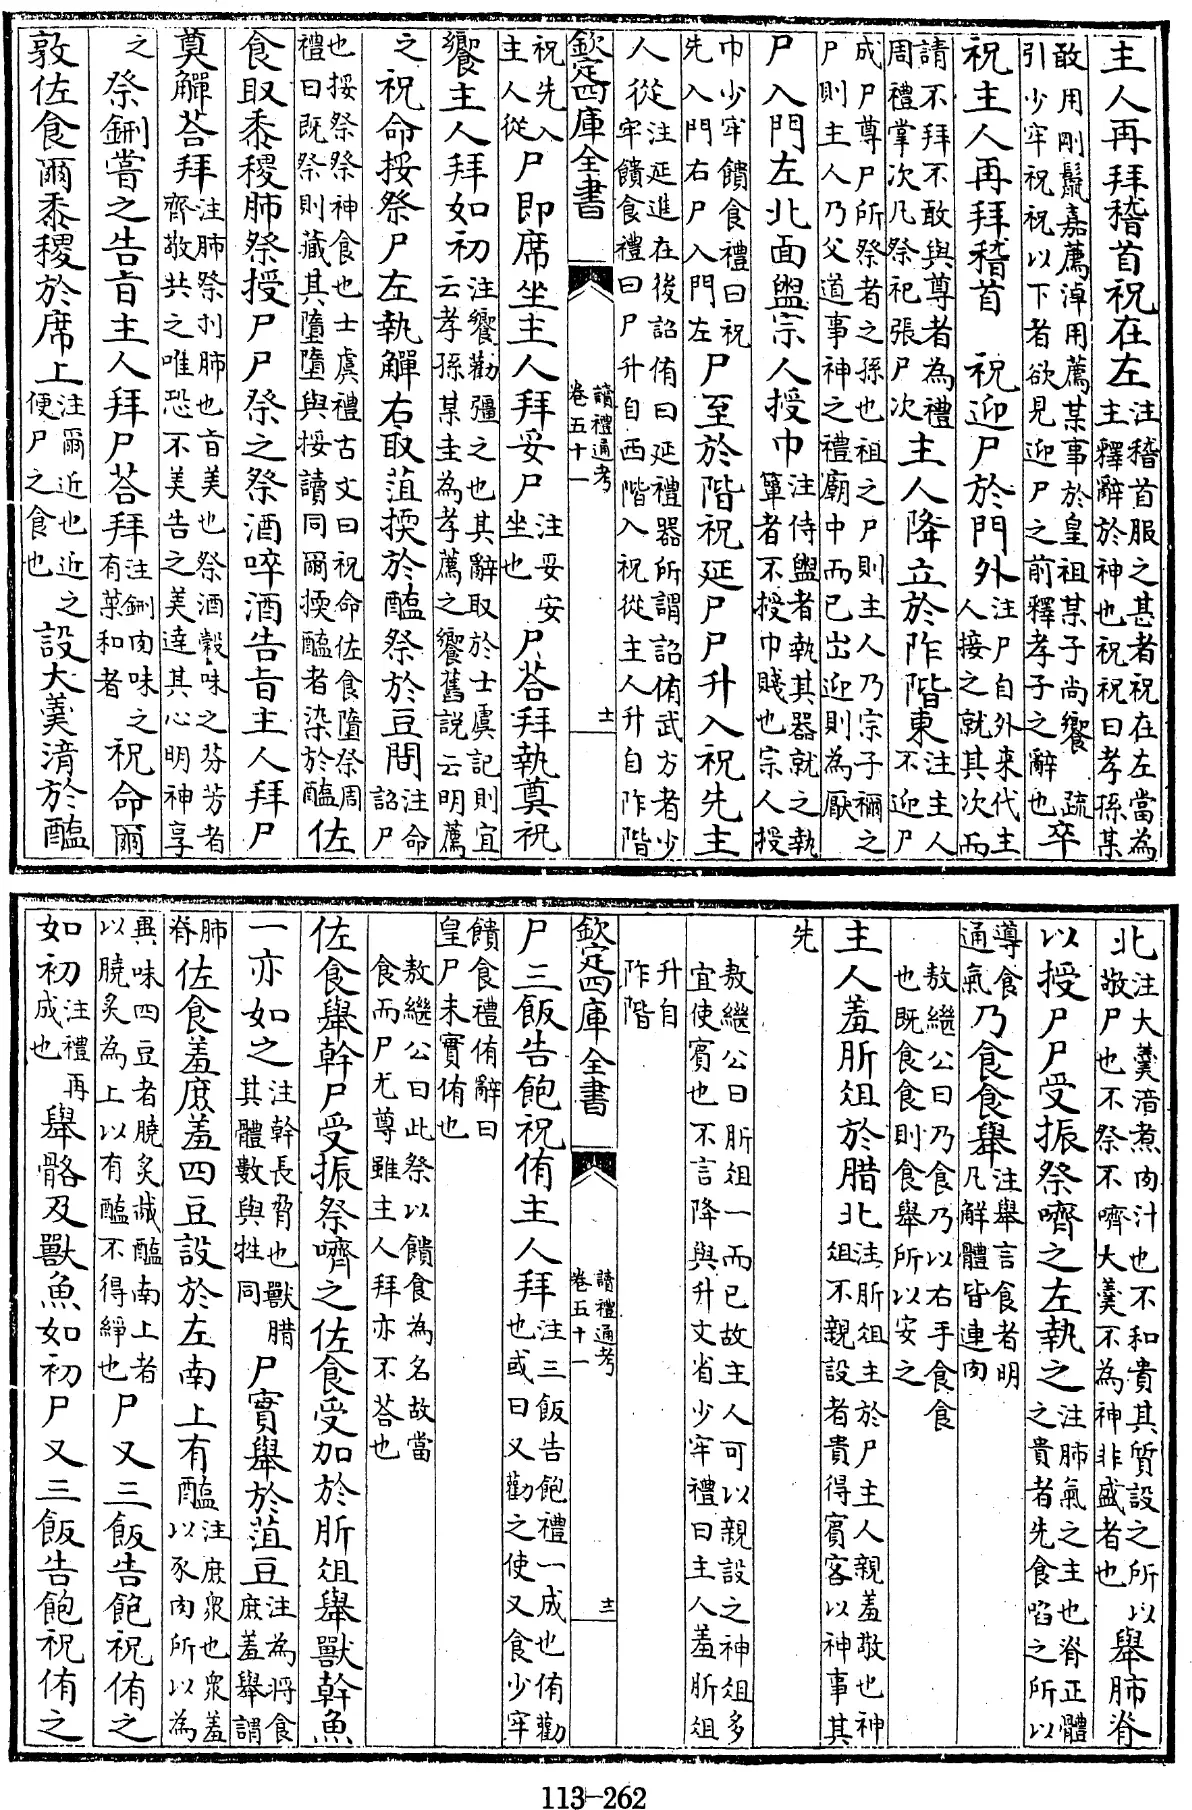 主人再拜稽首祝在左注稽首服之甚者祝在左當為主釋辭於神也祝祝曰孝孫某
敢用剛鬛嘉薦淖用薦某事於皇祖某子尚饗疏引少牢祝祝以下者欲見迎尸之前釋孝子之辭也卒
祝主人再拜稽首　祝迎尸於門外注尸自外來代主人接之就其次而
請不拜不敢與尊者為禮周禮掌次凡祭祀張尸次主人降立於阼階東注主人不迎尸
成尸尊尸所祭者之孫也祖之尸則主人乃宗子禰之尸則主人乃父道事神之禮廟中而已出迎則為厭
尸入門左北面盥宗人授巾注侍盥者執其器就之執簞者不授巾賤也宗人授
巾少牢饋食禮曰祝先入門右尸入門左尸至於階祝延尸尸升入祝先主
人從注延進在後詔侑曰延禮器所謂詔侑武方者少牢饋食禮曰尸升自西階入祝從主人升自阼階
欽定四庫全書　讀禮通考卷五十一　十一
祝先入主人從尸即席坐主人拜妥尸注妥安坐也尸荅拜執奠祝
饗主人拜如初注饗勸彊之也其辭取於士虞記則宜云孝孫某圭為孝薦之饗舊說云明薦
之祝命挼祭尸左執觶右取菹㨎於醢祭於豆間注命詔尸
也挼祭祭神食也士虞禮古文曰祝命佐食墮祭周禮曰既祭則藏其墮墮與挼讀同爾㨎醢者染於醢佐
食取黍稷肺祭授尸尸祭之祭酒啐酒告旨主人拜尸
奠觶荅拜注肺祭刌肺也旨美也祭酒糓味之芬芳者齊敬共之唯恐不美告之美達其心明神享
之祭鉶嘗之告旨主人拜尸荅拜注鉶肉味之有菜和者祝命爾
敦佐食爾黍稷於席上注爾近也近之便尸之食也設大羮湆於醢
北注大羮湆煮肉汁也不和貴其質設之所以敬尸也不祭不嚌大羮不為神非盛者也舉肺脊
以授尸尸受振祭嚌之左執之注肺氣之主也脊正體之貴者先食啗之所以
導食通氣乃食食舉注舉言食者明凡解體皆連肉
敖繼公曰乃食乃以右手食食也既食食則食舉所以安之
主人羞肵俎於腊北注肵俎主於尸主人親羞敬也神俎不親設者貴得賓客以神事其
先
敖繼公曰肵俎一而已故主人可以親設之神俎多宜使賓也不言降與升文省少牢禮曰主人羞肵俎
升自阼階
欽定四庫全書　讀禮通考卷五十一　十二
尸三飯告飽祝侑主人拜注三飯告飽禮一成也侑勸也或曰又勸之使又食少牢
饋食禮侑辭曰皇尸未實侑也
敖繼公曰此祭以饋食為名故當食而尸尤尊雖主人拜亦不荅也
佐食舉幹尸受振祭嚌之佐食受加於肵俎舉獸幹魚
一亦如之注幹長脅也獸腊其體數與牲同尸實舉於菹豆注為將食庶羞舉謂
肺脊佐食羞庶羞四豆設於左南上有醢注庶衆也衆羞以豕肉所以為
異味四豆者膮炙胾醢南上者以膮炙為上以有醢不得綪也尸又三飯告飽祝侑之
如初注禮再成也舉骼及獸魚如初尸又三飯告飽祝侑之
113-262